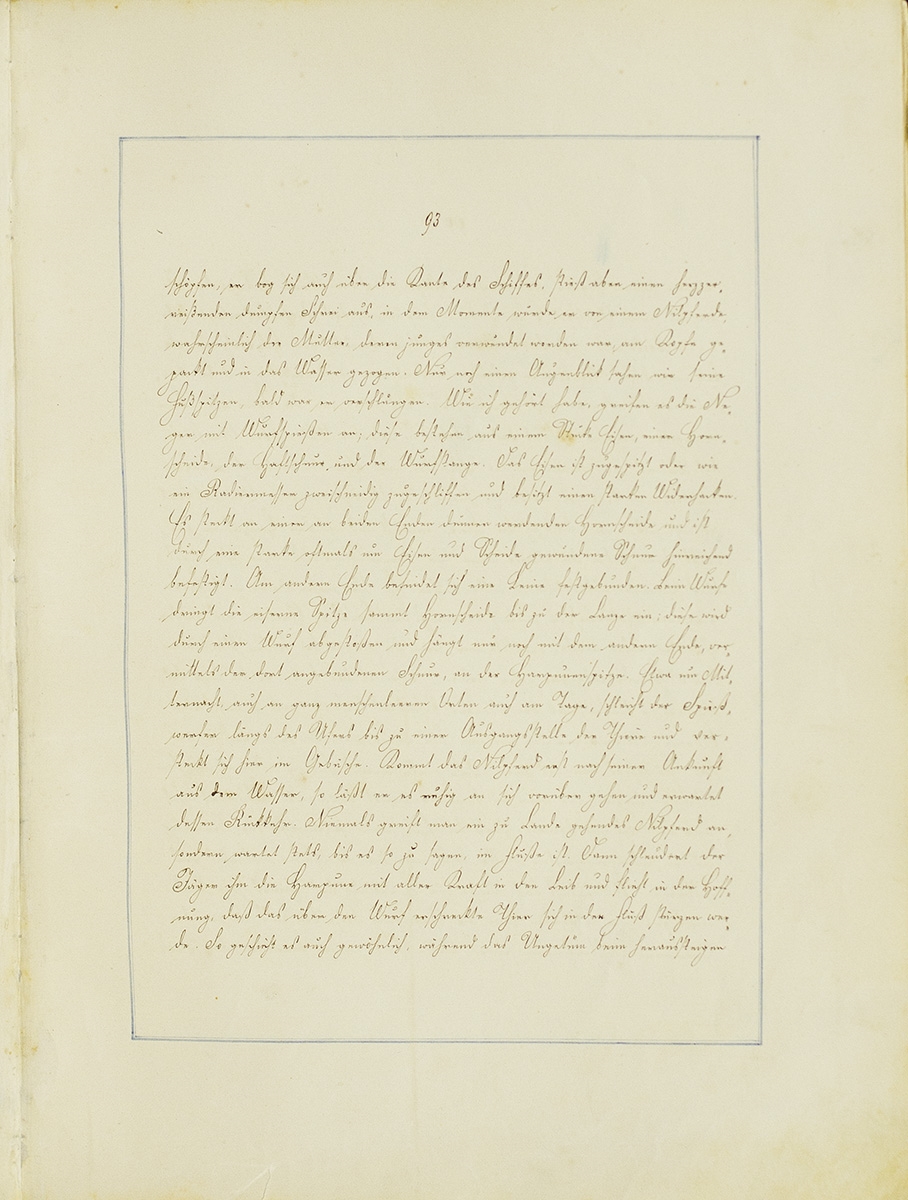 93
schöpfen, er bog sich auch über die Kante des Schiffes, stieß aber einen herzzer-
reißenden dumpfen Schrei aus, in dem Momente wurde er von einem Nilpferde,
wahrscheinlich der Mutter, deren junges verwundet worden war, am Kopfe ge-
packt und in das Wasser gezogen. Nur noch einen Augenblick sahen wir seine
Fußspitzen, bald war er verschlungen. Wie ich gehört habe, greifen es die Ne-
ger mit Wurfspießen an; diese bestehen aus einem Stücke Eisen, einer Horn-
scheide, der Haftschnur und der Wurfstange. Das Eisen ist zugespitzt oder wie
ein Radiermesser zweischneidig zugeschliffen und besitzt einen starken Widerhacken.
Es steckt an einer an beiden Enden dünner werdenden Hornscheide und ist
durch eine starke oftmals um Eisen und Scheide gewundene Schnur hinreichend
befestigt. Am andern Ende befindet sich eine Leine festgebunden. Beim Wurfe
dringt die eiserne Spitze sammt Hornscheide bis zu der Lanze ein; diese wird
durch einen Wurf abgestoßen und hängt nur noch mit dem andern Ende, ver-
mittels der dort angebundenen Schnur, an der Harpunenspitze. Etwa um Mit-
ternacht, auch an ganz menschenleeren Orten auch am Tage, schleicht der Spieß-
werfer längs des Ufers bis zu einer Ausgangsstelle der Thiere und ver-
steckt sich hier im Gebüsche. Kommt das Nilpferd erst nach seiner Ankunft
aus dem Wasser, so läßt er es ruhig an sich vorüber gehen und erwartet
dessen Rückkehr. Niemals greift man ein zu Lande gehendes Nilpferd an,
sondern wartet stets, bis es so zu sagen, im Fluße ist. Dann schleudert der
Jäger ihm die Harpune mit aller Kraft in den Leib und flieht in der Hoff-
nung, daß das über den Wurf erschreckte Thier sich in den Fluß stürzen wer-
de. So geschieht es auch gewöhnlich, während das Ungetüm beim heraussteigen